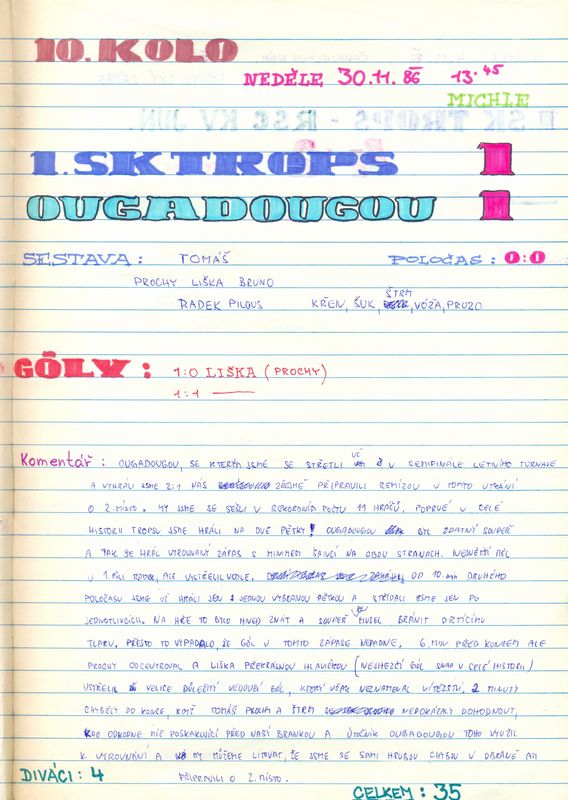 10. KOLO
NEDĚLE 30.11.86 13.45
MICHLE
1.SK TROPS 1
OUGADOUGOU 1
SESTAVA : TOMÁŠ POLOČAS : 0:0
PROCHY LIŠKA BRUNO
ŠTRM
RADEK PILOUS KŘEN, ŠUK, VÓZA, PRUZO
GÓLY : 1:0 LIŠKA (PROCHY)
1:1 —
Komentář : OUGADOUGOU, SE KTERÝM JSME SE STŘETLI UŽ V SEMIFINÁLE LETNÍHO TURNAJE
A VYHRÁLI JSME 2:1 NÁS ZÁSMĚ PŘIPRAVILI REMÍZOU V TOMTO UTKÁNÍ
O 2. MÍSTO. MY JSME SE SEŠLI V REKORDNÍM POČTU 11 HRÁČŮ, POPRVÉ V CELÉ
HISTORII TROPSU JSME HRÁLI NA DVĚ PĚTKY! OUGADOUGOU BYL ZDATNÝ SOUPEŘ
A TAK SE HRÁL VYROVNANÝ ZÁPAS S MINIMEM ŠANCÍ NA OBOU STRANÁCH. NEJVĚTŠÍ MĚL
V 1. PŮLI RADEK, ALE VYSTŘELIL VEDLE. OD 10. min DRUHÉHO
POLOČASU JSME UŽ HRÁLI JEN S JEDNOU VYBRANOU PĚTKOU A STŘÍDALI JSME JEN PO
JEDNOTLIVCÍCH. NA HŘE TO BYLO HNED ZNÁT A SOUPEŘ SE MUSEL BRÁNIT DRTÍCÍMU
TLAKU. PŘESTO TO VYPADALO, ŽE GÓL V TOMTO ZÁPASE NEPADNE. 6. MIN PŘED KONCEM ALE
PROCHY ODCENTROVAL A LIŠKA PŘEKRÁSNOU HLAVIČKOU (NEJHEZČÍ GÓL SNAD V CELÉ HISTORII)
VSTŘELIL VELICE DŮLEŽITÝ VEDOUCÍ GÓL, KTERÝ VŠAK NEZNAMENAL VÍTĚZSTVÍ. 2 MINUTY
CHYBĚLY DO KONCE, KDYŽ TOMÁŠ PROCHY A ŠTRM NEDOKÁZALY DOHODNOUT,
KDO ODKOPNE MÍČ POSKAKUJÍCÍ PŘED NAŠÍ BRANKOU A ÚTOČNÍK OUGADOUGOU TOHO VYUŽIL
K VYROVNÁNÍ A MY MŮŽEME LITOVAT, ŽE JSME SE SAMI HRUBOU CHYBOU V OBRANĚ
PŘIPRAVILI O 2. MÍSTO.
DIVÁCI : 4
CELKEM : 35